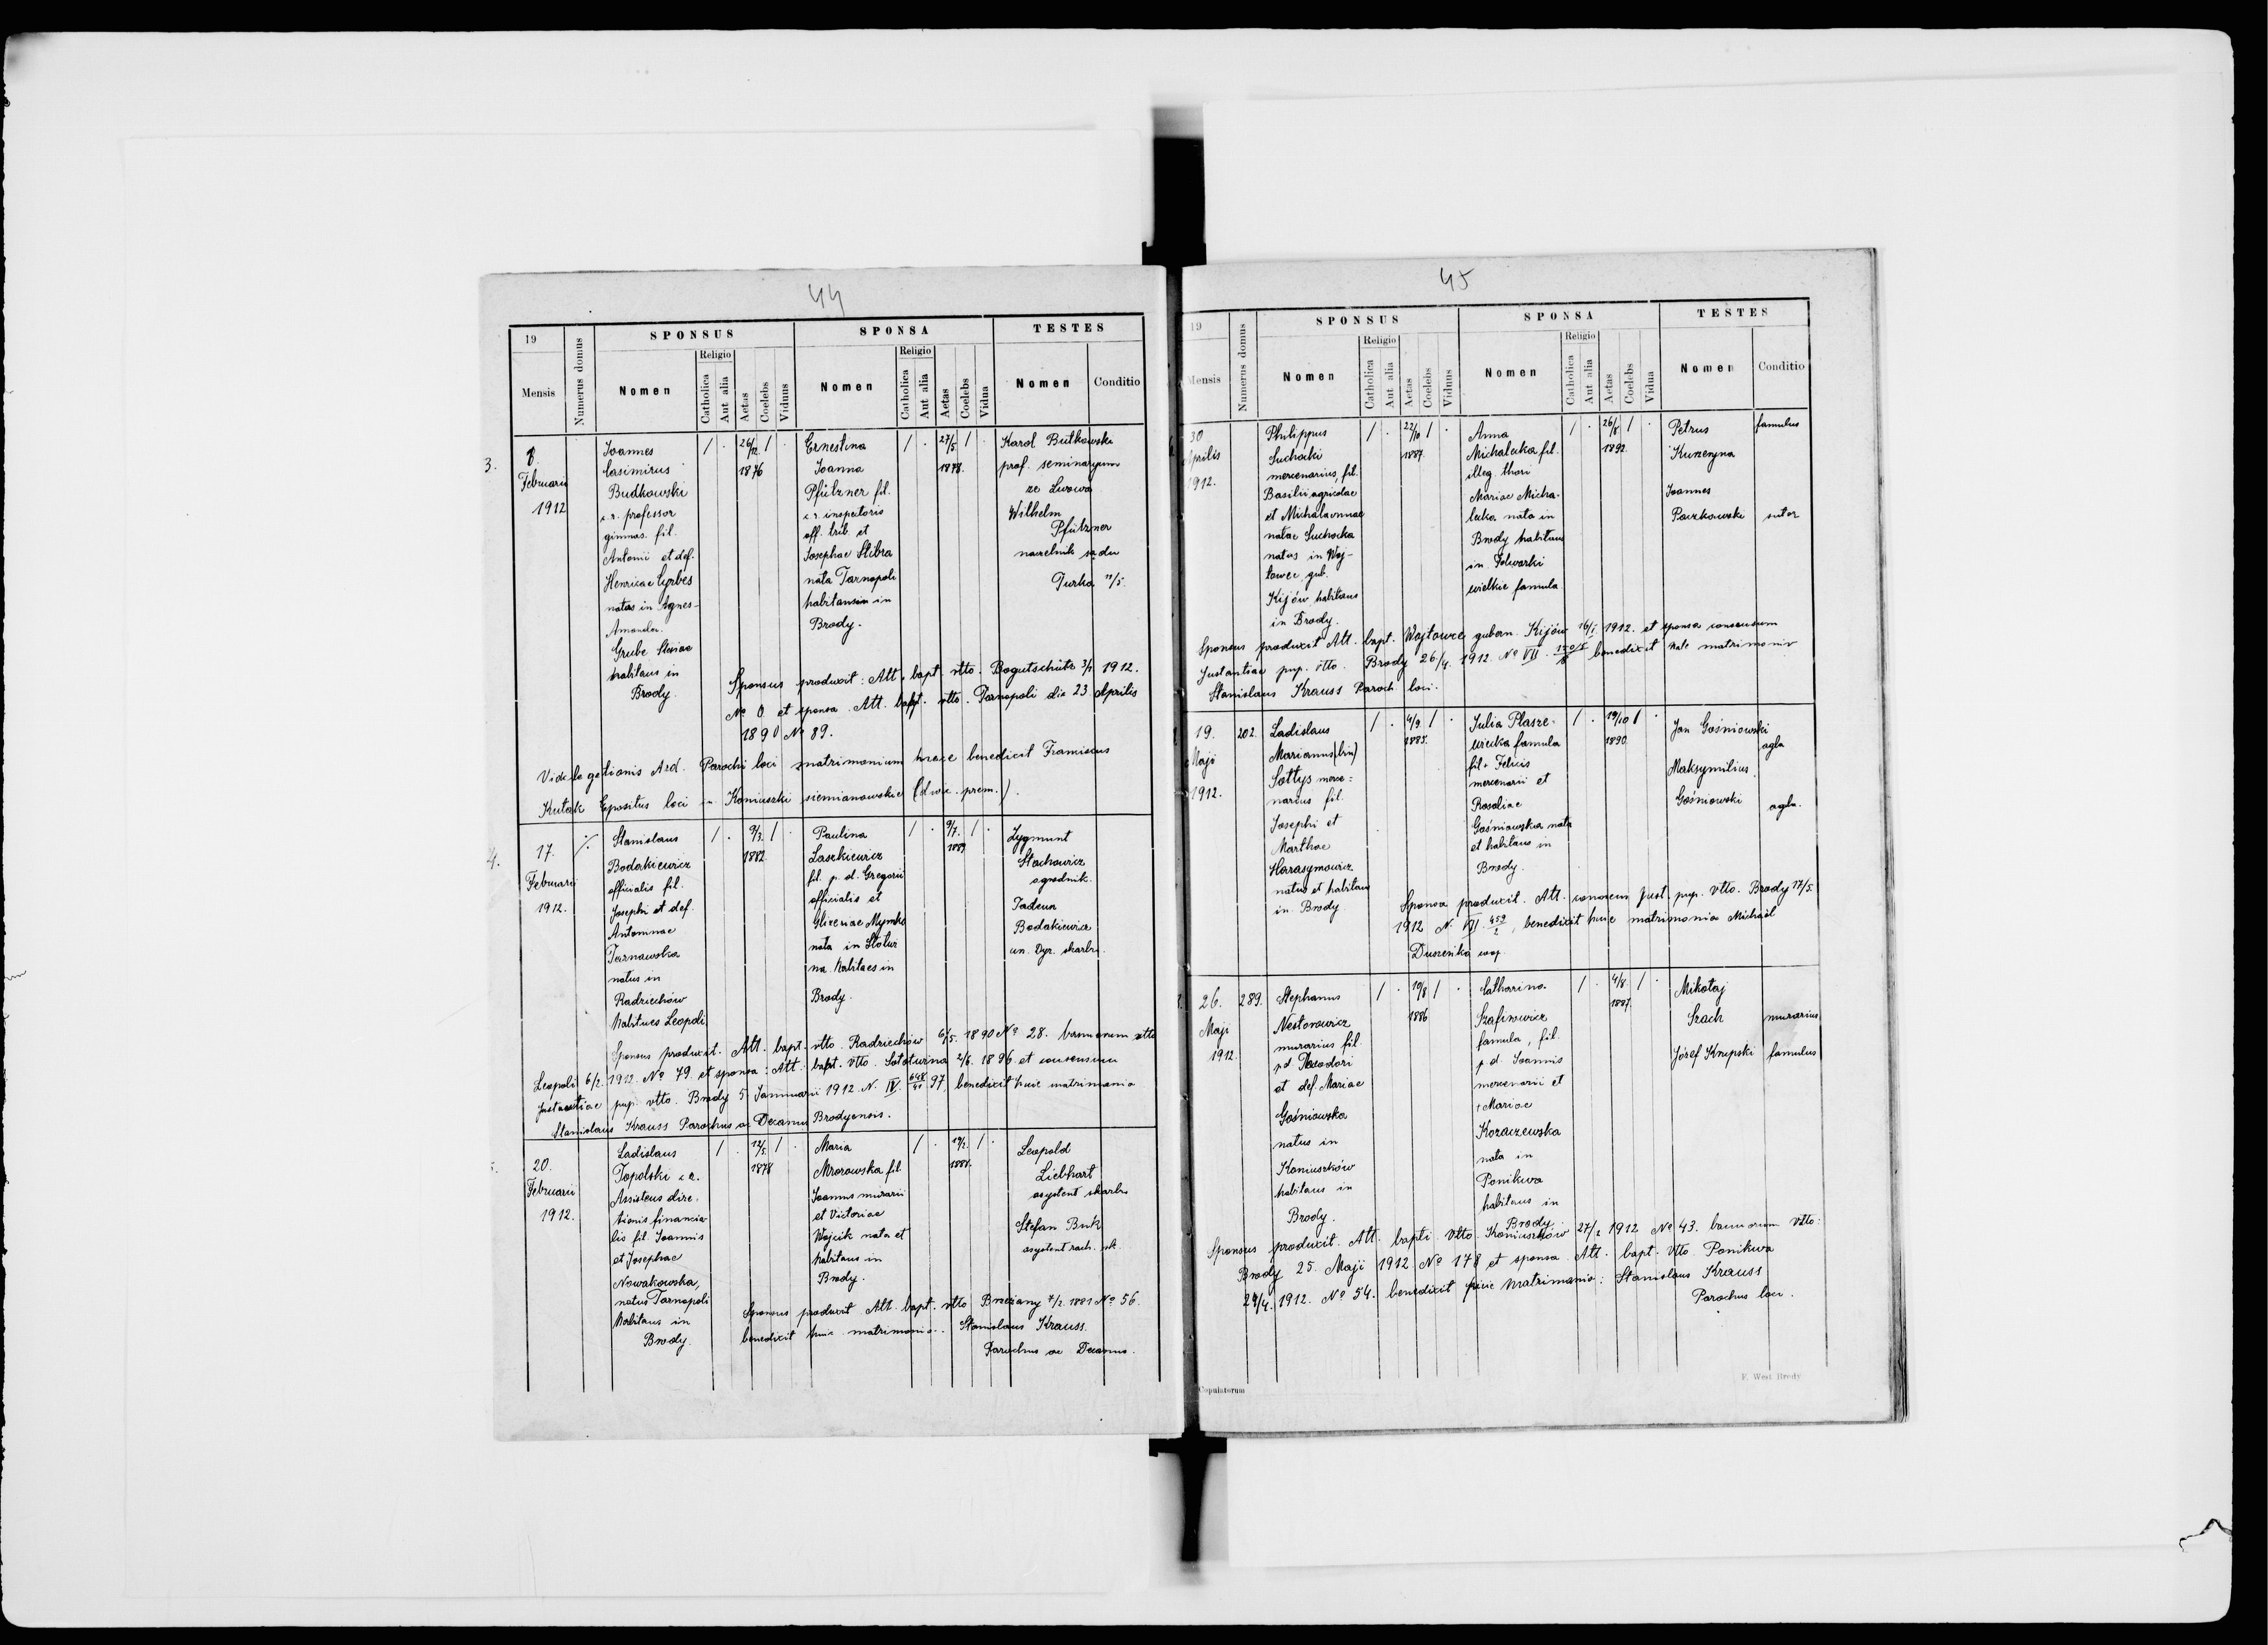 44
19
Mensis
Numerus domus
SPONSUS
Nomen
Religio
Catholica
Aut alia
Aetas
Coelebs
Viduus
SPONSA
Nomen
Religio
Catholica
Aut alia
Aetas
Coelebs
Vidua
TESTES
Nomen
Conditio
3.
8.
Februarii
1912
Joannes
Casimirus
Budkowski
c.r. professor
gimnas. fil.
Antonii et def.
Henricae Cyrbes
natus in Agnes-
Amanda.
Grube
habitans in
Brody.
/ . 26/12 / .
1876
Ernestina
Joanna
Pfützner fil.
c.r. inspectoris
off. trib. et
Josephae Stibra
nata Tarnopoli
habitans in
Brody.
/ . 27/5 / .
1878.
Karol Butkowski
prof. seminaryum
ze Lwowa
Wilhelm
Pfützner
naczelnik sądu
Turka
Sponsus produxit: Att. bapt. dtto. Bogutschütz 1912.
No 0 et sponsa Att. bapt. dtto. Tarnopoli die 23 Aprilis
1890 No 89.
Parochi loci matrimonium hocce benedicit Franciscus
Kutek Expositus loci in Koniuszki siemianowskie
4.
17.
Februarii
1912.
Stanislaus
Bodakiewicz
officialis fil.
Josephi et def.
Antoninae
Tarnawska
natus in
Radziechów
habitans Leopoli
/ . 9/3. / .
1882
Paulina
Laszkiewicz
fil. p. d. Gregorii
officialis et
Gliceriae Mymka
nata in
na habitans in
Brody.
/ . 9/7. / .
1889
Zygmunt
Stachowicz
ogrodnik.
Tadeusz
Bodakiewicz
un. Dyr. skarbu.
Sponsus produxit Att. bapt. dtto. Radziechów 6/5. 1890 No 28. bannorum dtto
Leopoli 6/2. 1912 No 79. et sponsa: Att. bapt. dtto. 2/6. 1896. et consensum
Justantiae pup. dtto. Brody 5 Januarii 1912 N. IV. 97, benedixit huic matrimonio
Stanislaus Krauss Parochus ac Decanus Brodyensis.
20.
Februarii
1912.
Ladislaus
Topolski c.r.
Assistens direc-
tionis financia-
lis fil. Joannis
et Josephae
Nowakowska,
natus Tarnopoli
habitans in
Brody.
/ . 12/5. / .
1878
Maria
Mrozowska fil.
Joannis murarii
et Victoriae
Wojcik nata et
habitans in
Brody.
/ . / .
Leopold
Liebhart
asystent skarbu
Stefan Buk
asystent rach.
Sponsus produxit Att. bapt. dtto Brzeżany 7/2. 1881 No 56.
benedixit huic matrimonio. Stanislaus Krauss.
Parochus ac Decanus.
45
19
Mensis
Numerus domus
SPONSUS
Nomen
Religio
Catholica
Aut alia
Aetas
Coelebs
Viduus
SPONSA
Nomen
Religio
Catholica
Aut alia
Aetas
Coelebs
Vidua
TESTES
Nomen
Conditio
30
Aprilis
1912.
Philippus
Suchocki
mercenarius, fil.
Basilii agricolae
et Michalinae
natae Suchocka
natus in Woj-
towce gub.
Kijów habitans
in Brody.
/ . 22/10 / .
1887.
Anna
Michalecka fil.
illeg. thori
Mariae Micha-
lecka nata in
Brody habitans
in Folwarki
wielkie famula
/ . 26/8. / .
1892.
Petrus
famulus
Joannes
Paczkowski sutor
Sponsus produxit Att. bapt. Wojtowce gubern. Kijów 1912. et sponsa consensum
Justantiae pup. dtto. Brody 26/4. 1912. No VII. benedixit huic matrimonio
Stanislaus Krauss Paroch. loci.
19.
Maji
1912.
202.
Ladislaus
Marianus (bin)
Sołtys merce-
narius fil.
Josephi et
Marthae
Harasymowicz
natus et habitans
in Brody
/ . 4/9. / .
1885.
Julia Plasze-
wiecka famula
fil. Felicis
mercenarii et
Rosaliae
Gośniowska nata
et habitans in
Brody.
/ . 19/10 / .
1890.
Jan Gośniowski
agla
Maksymilius
Gośniowski
agla.
Sponsa produxit. Att. consens. Just. pup. dtto. Brody 17/5.
1912 N. VII 459/2, benedixit huic matrimonio Michaël
Duszeńko coop.
26.
Maji
1912
289.
Stephanus
Nestorowicz
murarius fil.
p.d. Theodori
et def. Mariae
Gośniowska
natus in
Koniuszków
habitans in
Brody.
/ . 10/8 / .
1886
Catharina
Szafirowicz
famula, fil.
p.d. Joannis
mercenarii et
Mariae
Koraczewska
nata in
Ponikwa
habitans in
Brody
/ . 4/8. / .
1887.
Mikołaj
Szach murarius
Józef Krupski famulus
Sponsus produxit. Att. bapti. dtto. Koniuszków 27/2 1912 No 43. bannorum dtto:
Brody 25. Maji 1912 No 178 et sponsa Att. bapt. dtto. Ponikwa
24/4. 1912. No 54. benedixit huic matrimonio: Stanislaus Krauss
Parochus loci.
Copulatorum
F. West Brody